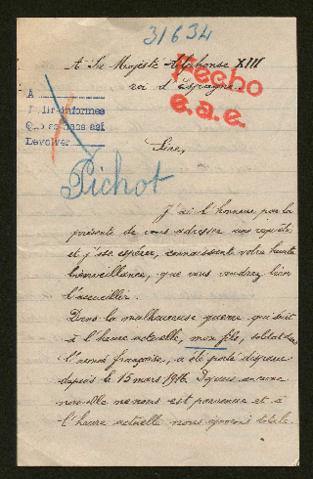 31634
A Sa Majesté Alphonse XIII
roi d'Espagne
Hecho
e.a.e.
A
Pedir informes
Que se hace así
Devolver
Sire,
Pichot
J'ai l'honneur, par la
présente de vous adresser une requête
et j'ose espérer, connaissant votre haute
bienveillance, que vous voudrez bien
l'accueillir.
Dans la malheureuse guerre qui sévit
à l'heure actuelle, mon fils, soldat dans
l'armée française, a été porté disparu
depuis le 15 mars 1916. Depuis aucune
nouvelle ne nous est parvenue et à
l'heure actuelle nous ignorons totale-